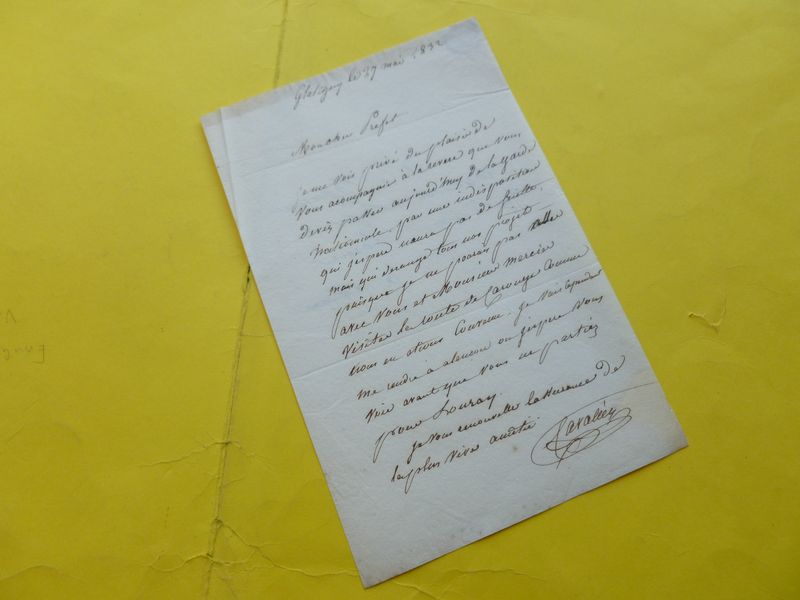 Glatigny le 27 mai 1832
Monsieur Préfet
je me vois privé du plaisir de
vous accompagner à la revue que vous
devez passer aujourd'huy de la garde
nationale, par une indisposition
qui j'espere naura pas de suitte,
mais qui derange tous nos projets
puisque je ne pourai pas aller
avec vous et Monsieur mercier
visiter la route de Carouge comme
nous en etions convenu. je vais cependant
me rendre à alencon ou j'espere vous
voir avant que vous ne partiez
pour Louray
je vous renouvelle l'assurance de
la plus vive amitié